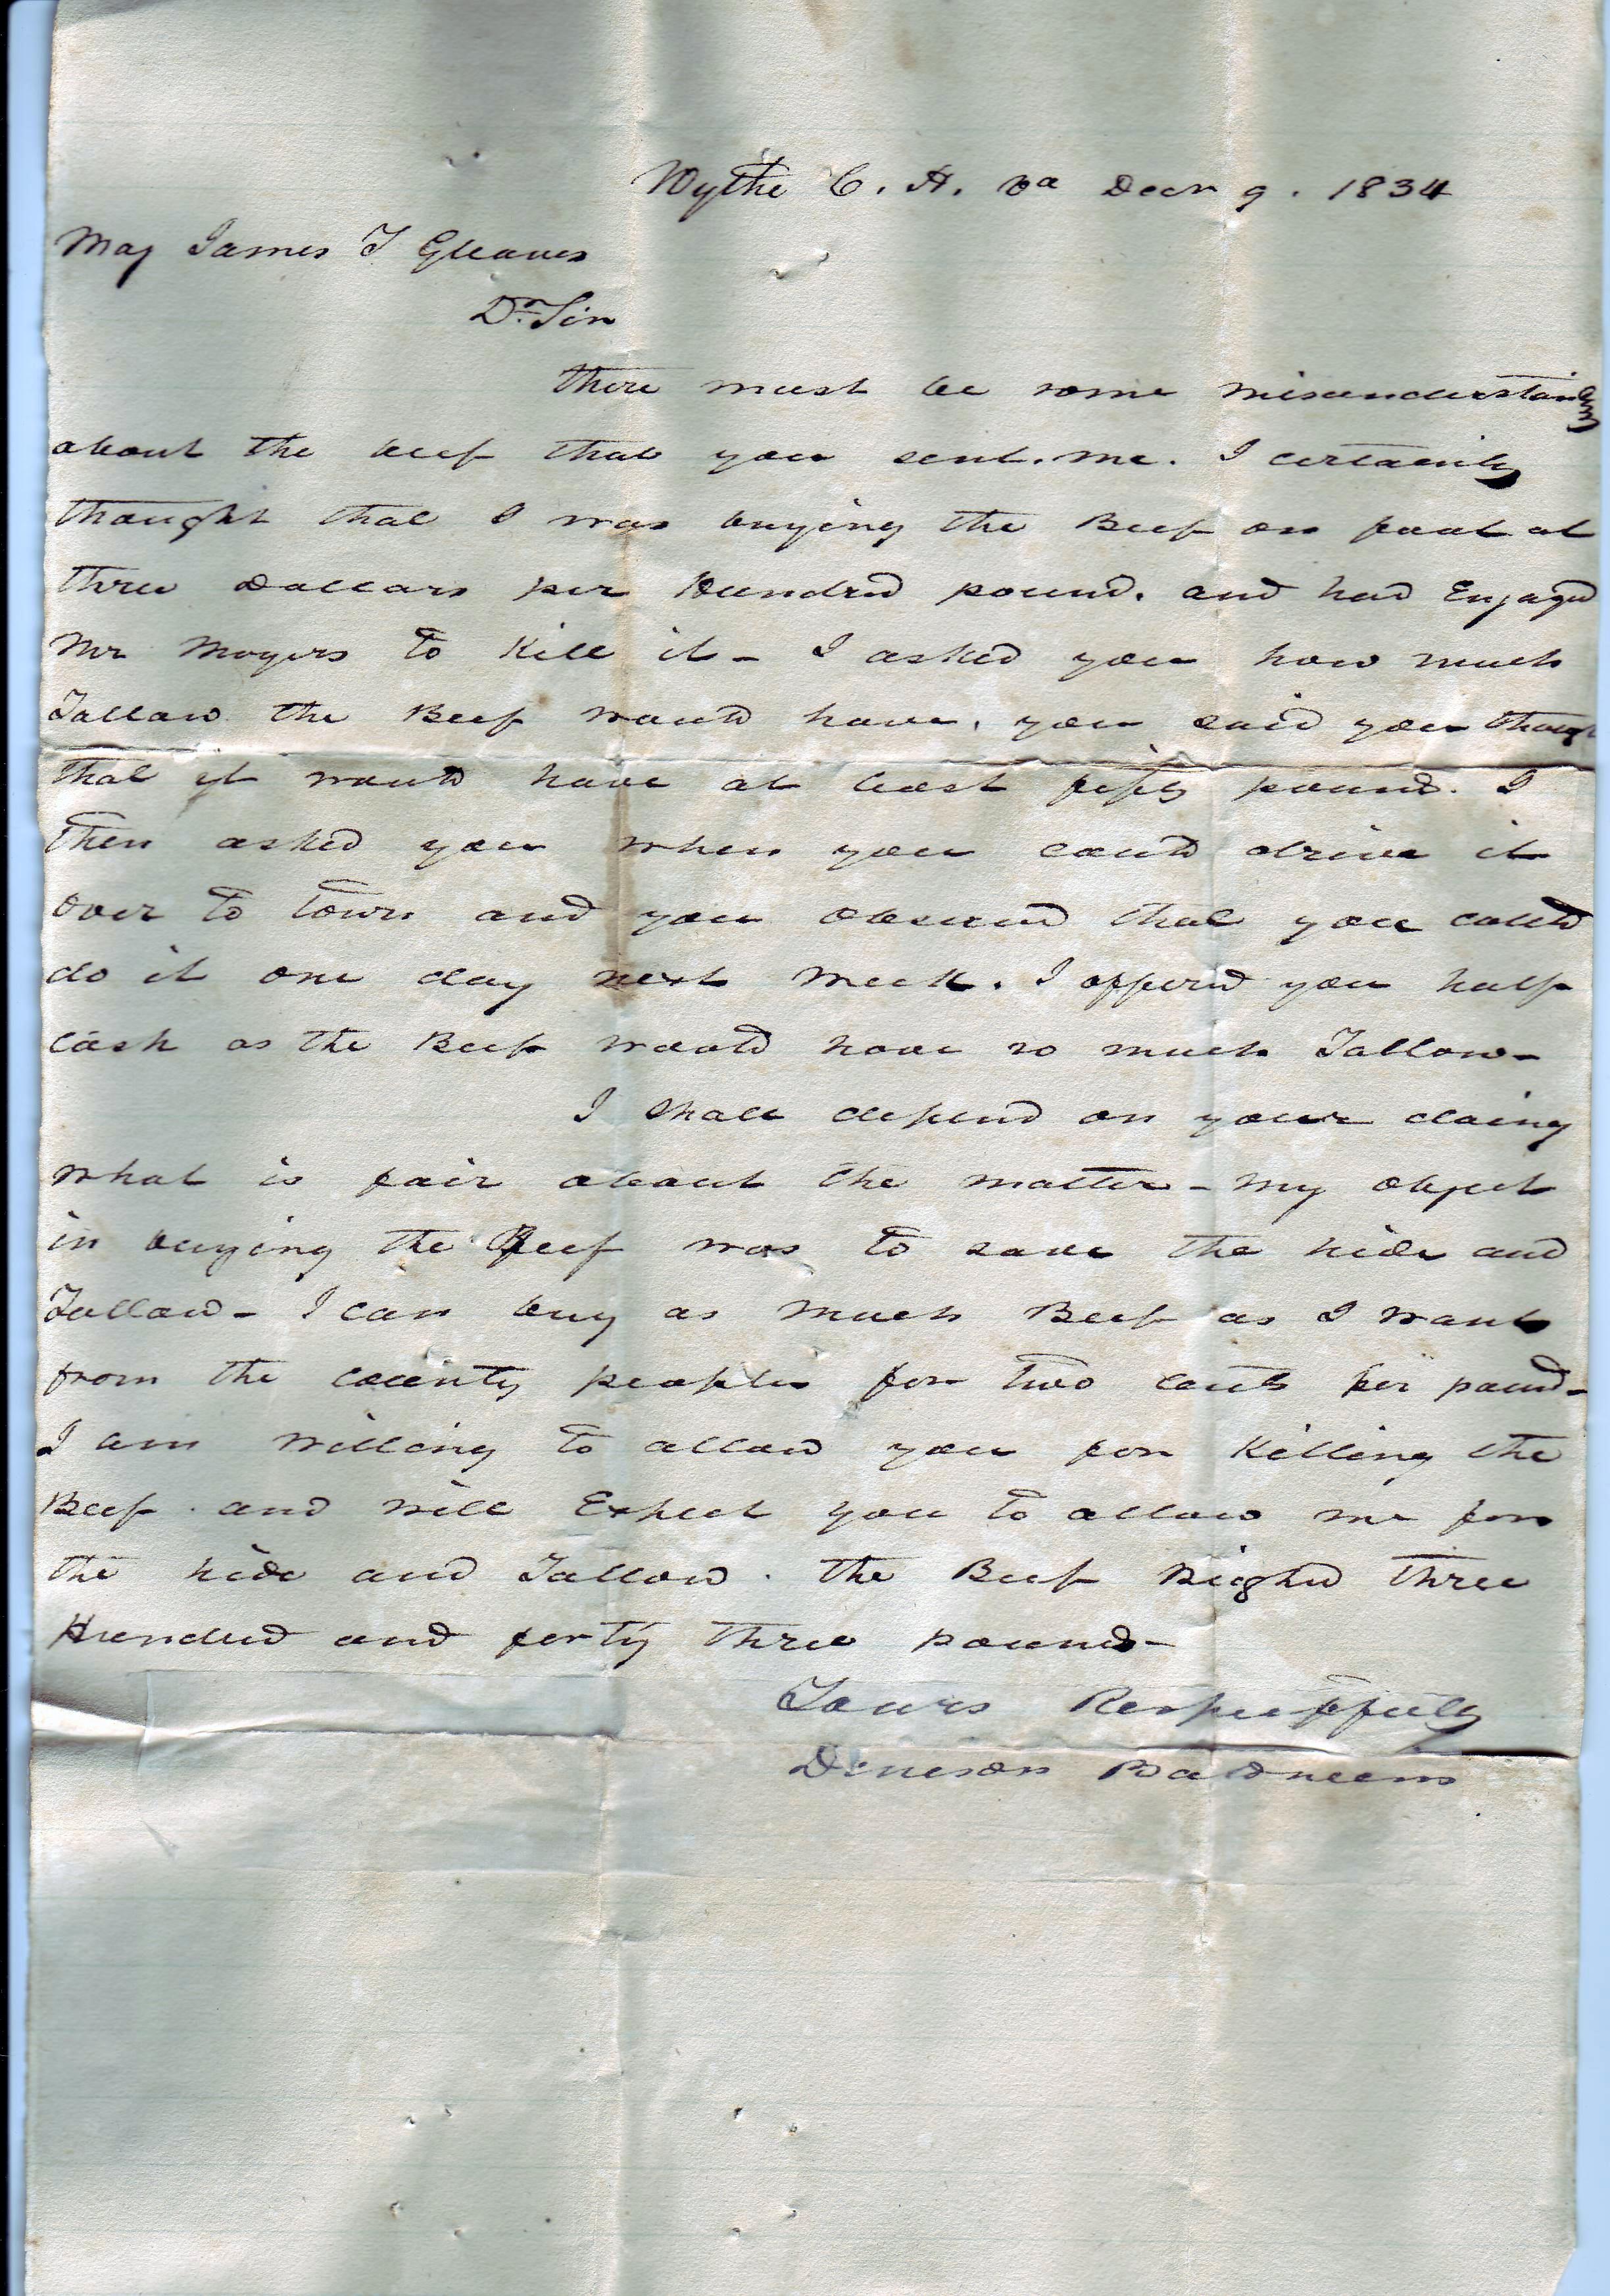 Wythe C. H. Va Decr 9. 1834
Maj James T Gleaves
Dr Sir
There must be some misunderstanding
about the beef that you sent. me. I certainly
thought that I was buying the Beef on foot at
three Dollars per Hundred pound. and had Engaged
Mr Moyers to Kill it - I asked you how much
Tallow the Beef would have, you said you though
that it would have at least fifty pound. I
then asked you when you could drive it
over to town and you observed that you could
do it one day next week. I offered you half
cash as the Beef would have so much Tallow -
I shall depend on your doing
what is fair about the matter - my object
in buying the Beef was to save the hide and
Tallow - I can buy as much Beef as I want
from the county peoples for two cents per pound -
I am willing to allow you for Killing the
Beef. and will Expect you to allow me for
the hide and Tallow. the Beef Weighed three
Hundred and forty three pounds -
Yours Respectfully